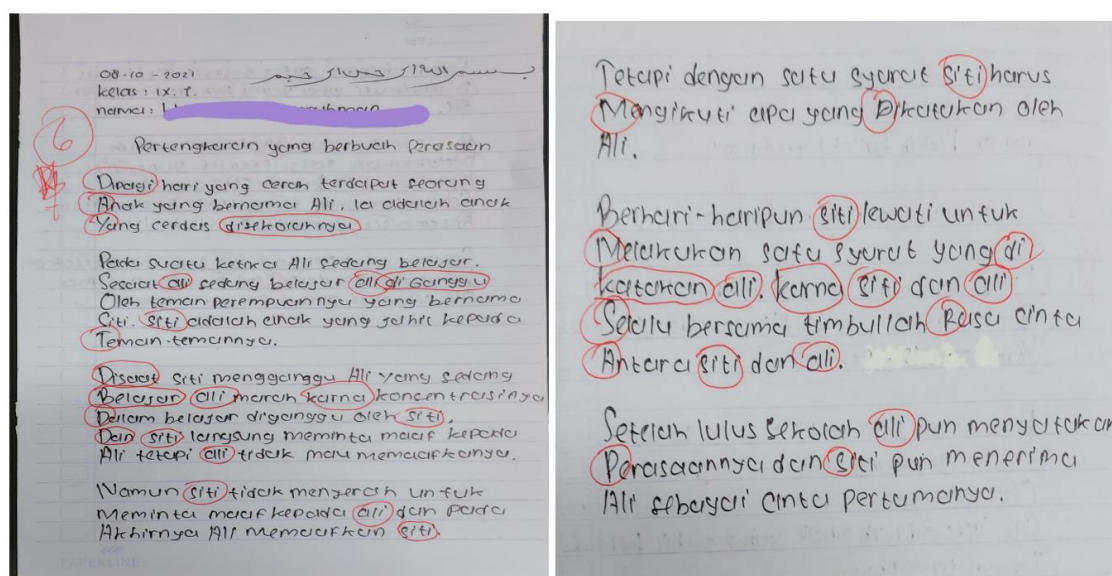 08-10-2021
kelas : IX.
nama :
6
Pertengkaran yang berbuah Perasaan
Dipagi hari yang cerah terdapat seorang
Anak yang bernama Ali. Ia adalah anak
Yang cerdas disekolahnya
Pada suatu ketika Ali sedang belajar.
Sesaat ali sedang belajar ali di Ganggu
Oleh teman perempuannya yang bernama
Siti. siti adalah anak yang jahil kepada
Teman-temannya.
Disaat siti mengganggu Ali yang sedang
Belajar ali marah karna konsentrasinya
Dalam belajar diganggu oleh siti.
Dan siti langsung meminta maaf kepada
Ali tetapi ali tidak mau memaafkanya.
Namun siti tidak menyerah untuk
Meminta maaf kepada ali dan pada
Akhirnya Ali memaafkan siti.
PAPERLINE
Tetapi dengan satu syarat siti harus
Mengikuti apa yang Dikatakan oleh
Ali.
Berhari-haripun siti lewati untuk
Melakukan satu syarat yang di
katakan ali. karna siti dan ali
Selalu bersama timbullah Rasa cinta
Antara siti dan ali.
Setelah lulus sekolah ali pun menyatakan
Perasaannya dan siti pun menerima
Ali sebagai cinta pertamanya.